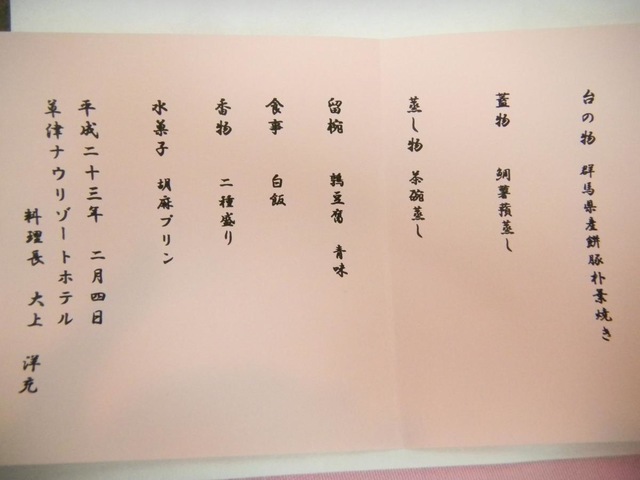 台の物 群馬県産餅豚朴葉焼き
蓋物 鯛薯蕷蒸し
蒸し物 茶碗蒸し
留椀 鶉豆腐 青味
食事 白飯
香物 二種盛り
水菓子 胡麻プリン
平成二十三年 二月四日
草津ナウリゾートホテル
料理長 大上 洋充